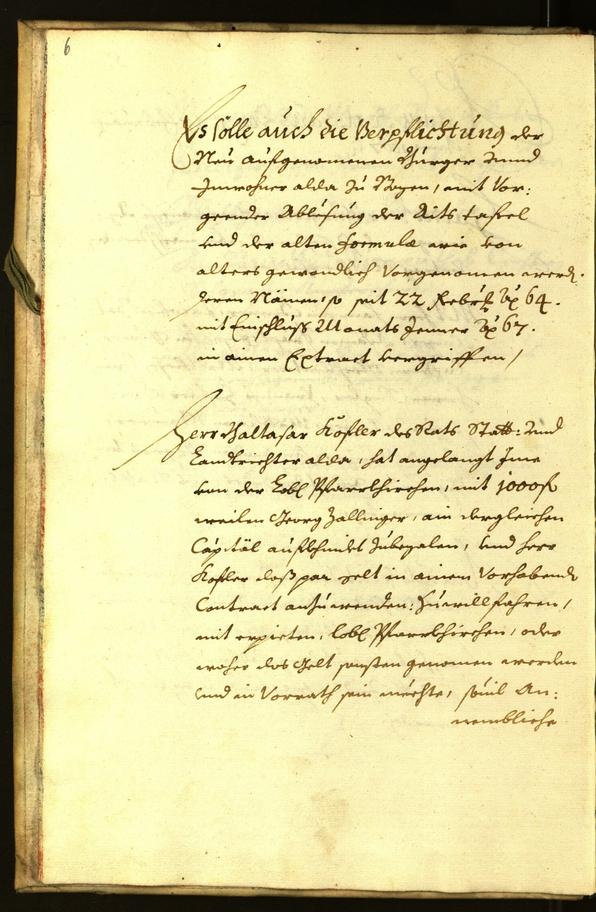 6
Es solle auch die Verpflichtung der
Neu aufgenomenen Burger unnd
Inwohner alda zu Bozen, mit Vor:
geender Ablesung der Aits tafel
und der alten Formula wie von
alters gewondlich vorgenomen werd.
deren Nämen, so seit 22 Febr:
mit Einschluss Monats Jenner 67.
in ainen Extract vergriffen /
Herr Baltasar Kofler des Rats Statt: und
Landtrichter alda, hat angelangt Ime
von der Lobl Pfarrkhirchen, mit 1000 f
weilen Georg Zallinger, ain dergleichen
Capitäl aufkhindt zubezalen, und herr
Kofler das par gelt in ainem Vorhabend
Contract anzuwenden: Zuwillfahren,
mit erpieten, lobl Pfarrkhirchen, oder
woher das Gelt sonsten genomen werden
und in Vorrath sein mechte, sovil An:
nemblichs